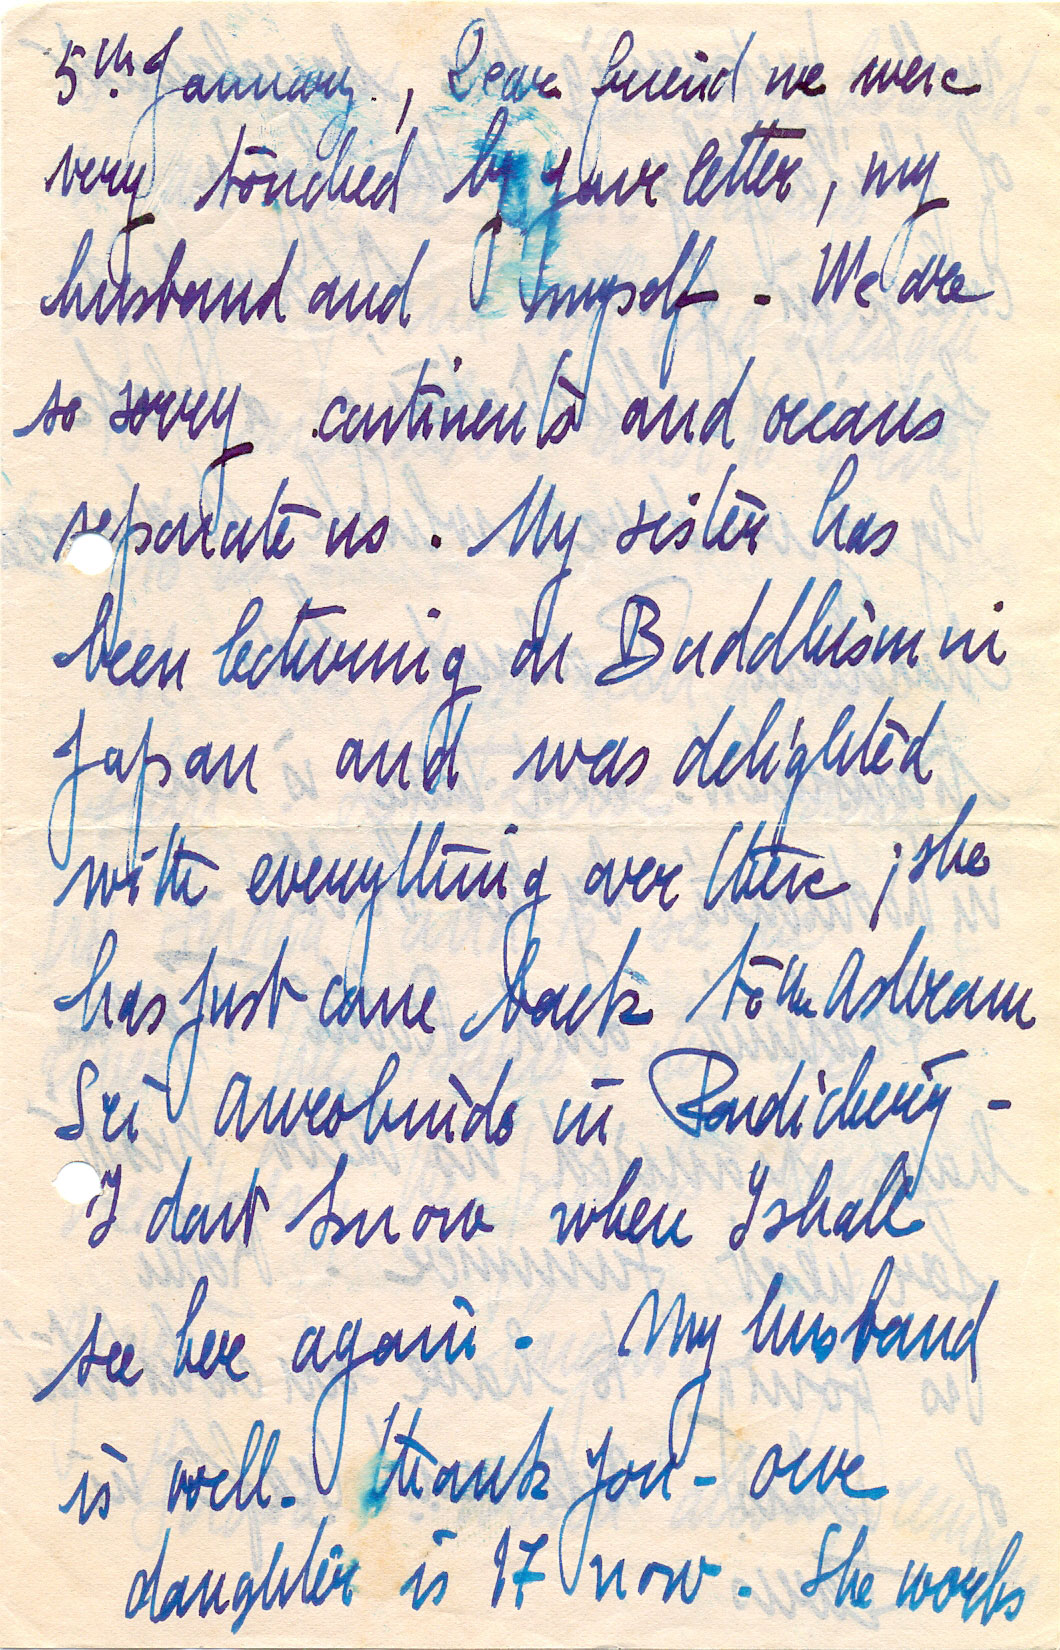 5th January, Dear friend we were
very touched by your letter, my
husband and myself - We are
so sorry continents and oceans
separate us. My sister has
been lecturing on Buddhism in
Japan and was delighted
with everything over there; she
has just come back to the Ashram
Sri Aurobindo in Pondichery -
I don't know when I shall
see her again - My husband
is well - thank you - our
daughter is 17 now. She works